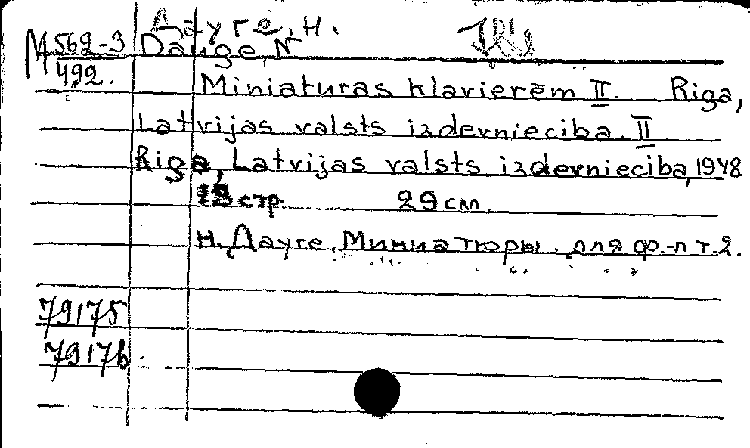 Дауге, Н.
М 562-3
492.
Dauge, N
Miniaturas klavierēm II. Riga,
Latvijas valsts izdevnieciba. II
Riga, Latvijas valsts izdevnieciba, 1948
13 стр. 29 см.
Н. Дауге. Миниатюры для ф.-п т.2.
79175
79176